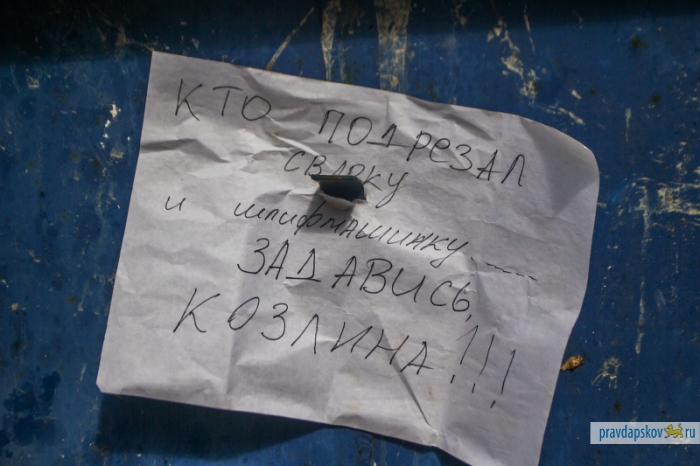 КТО ПОДРЕЗАЛ
СВАРКУ
и шлифмашинку......
ЗАДАВИСЬ,
КОЗЛИНА!!!
pravdapskov.ru